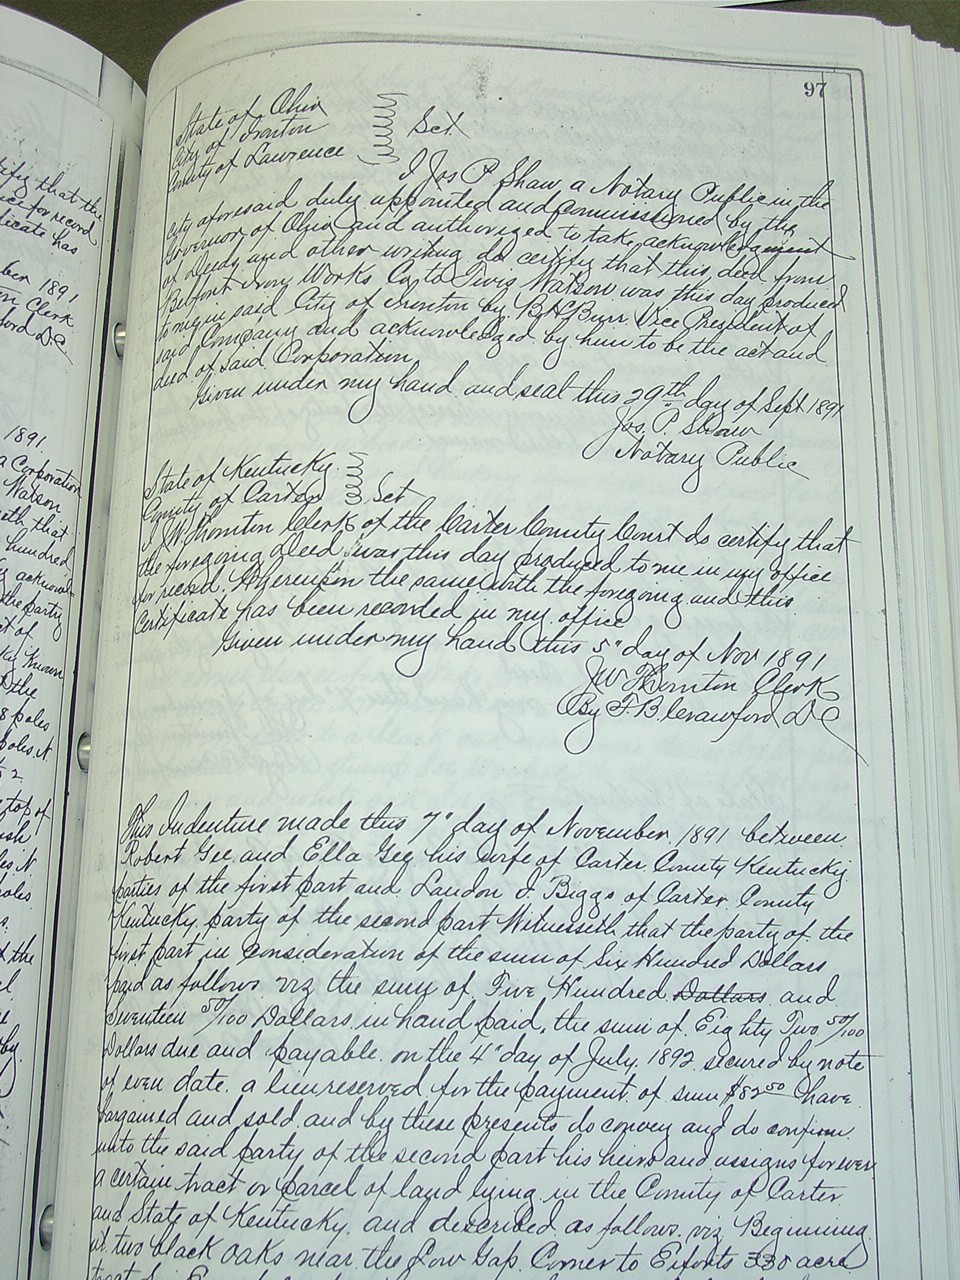 97
State of Ohio
City of Ironton
County of Lawrence
Sct
I Jos P. Shaw, a Notary Public in the
City aforesaid duly appointed and commissioned by the
Governor of Ohio and authorized to take acknowledgment
of Deeds and other writing do certify that this deed from
Belfont Irony Works Co to Tivis Watson was this day produced
to me in said City of Ironton by B H Burr Vice President of
said Company and acknowledged by him to be the act and
deed of said Corporation
Given under my hand and seal this 29th day of Sept 1891
Jos. P. Shaw
Notary Public
State of Kentucky
County of Carter
Sct
I JW Thornton Clerk of the Carter County Court do certify that
the foregoing Deed was this day produced to me in my office
for record. Whereupon the same with the foregoing and this
Certificate has been recorded in my office
Given under my hand this 5" day of Nov 1891
JW Thornton Clerk
By F. B. Crawford DC
This Indenture made this 7" day of November 1891 between
Robert Gee and Ella Gee his wife of Carter County Kentucky
parties of the first part and Landon J. Biggs of Carter County
Kentucky party of the second part Witnesseth that the party of the
first part in consideration of the sum of Six Hundred Dollars
paid as follows viz the sum of Five Hundred Dollars and
Seventeen 50/100 Dollars in hand paid, the sum of Eighty Two 50/100
Dollars due and payable on the 4" day of July 1892 secured by note
of even date. a lien reserved for the payment of sum $82 50 have
bargained and sold and by these presents do convey and do confirm
unto the said party of the second part his heirs and assigns forever
a certain tract or parcel of land lying in the County of Carter
and State of Kentucky and described as follows viz Beginning
at two black oaks near the Low Gap Corner to Eiforts 330 acre
1891
n Clerk
ford DC
1891
a Corporation
Watson
with that
hundred
the party
poles
top of